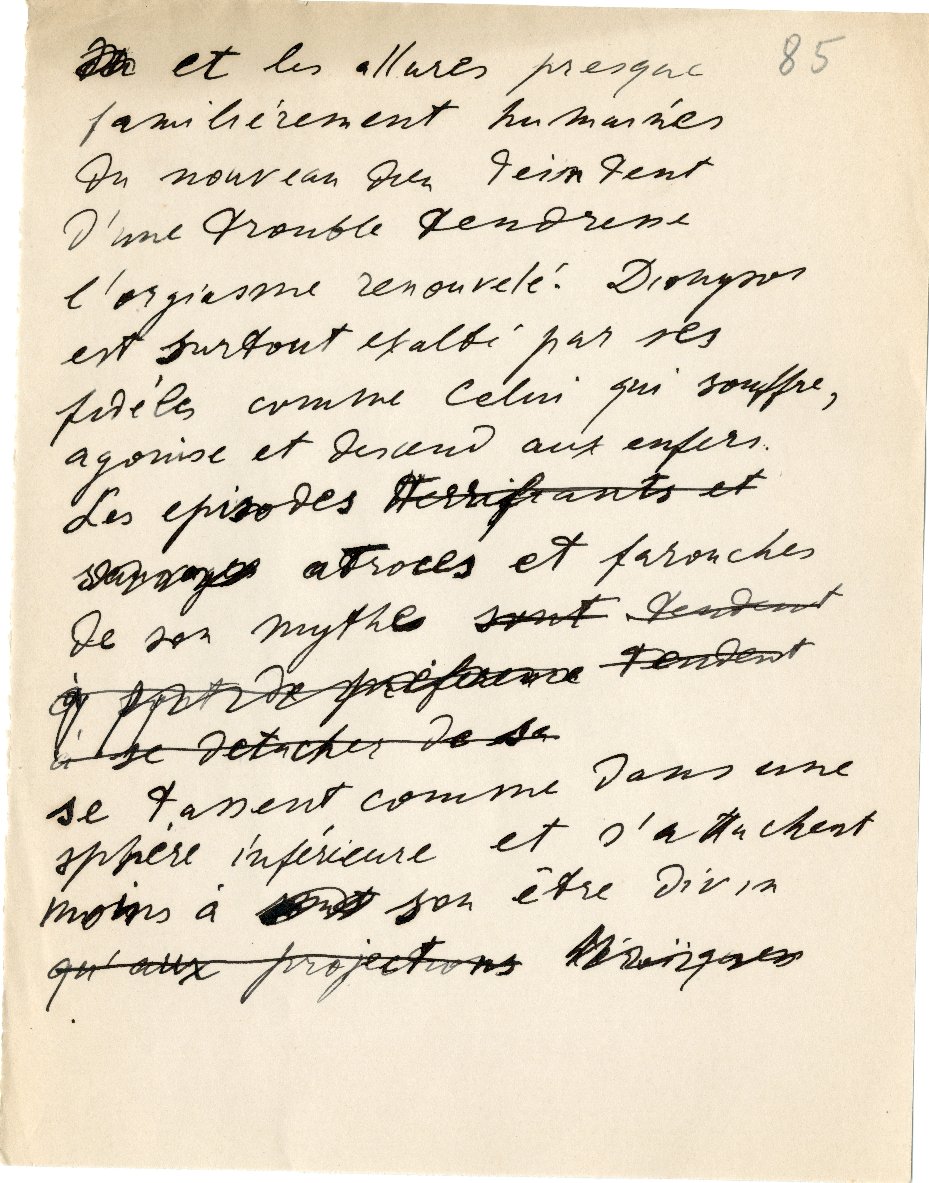 et les allures presque 85
familièrement humaines
du nouveau dieu teintent
d'une trouble tendresse
l'orgiasme renouvelé. Dionysos
est surtout exalté par ses
fidèles comme Celui qui souffre,
agonise et descend aux enfers.
Les episodes terrifiants et
sauvages atroces et farouches
de son mythe sont tendent
de préférence tendent
à se detacher de sa
se tassent comme dans une
sphère inférieure et s'attachent
moins à son être divin
qu'aux projections héroïques